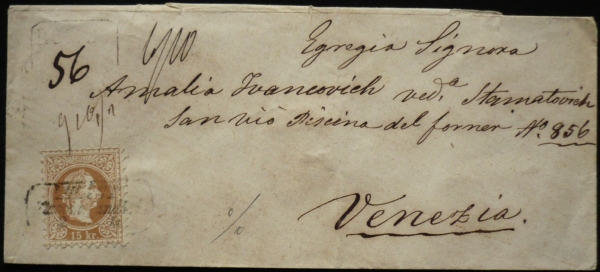 56
Egregia Signora
Amalia Ivancovich ved.ª Stamatovich
San Vio Piscina del forner No. 856
Venezia.
15 kr.